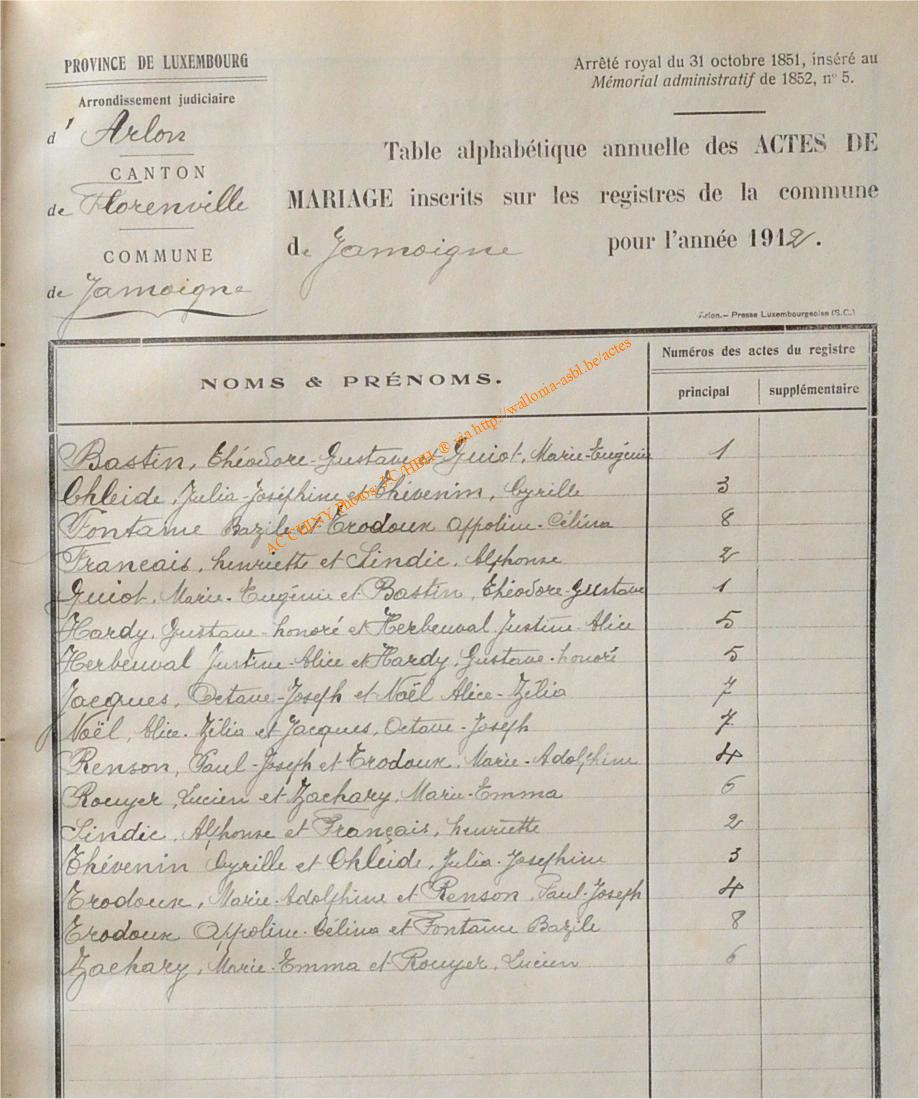 PROVINCE DE LUXEMBOURG
Arrondissement judiciaire
d' Arlon
CANTON
de Florenville
COMMUNE
de Jamoigne
Arrêté royal du 31 octobre 1851, inséré au
Mémorial administratif de 1852, n° 5.
Table alphabétique annuelle des ACTES DE
MARIAGE inscrits sur les registres de la commune
de Jamoigne pour l'année 1912.
Arlon.— Presse Luxembourgeoise (S.C.)
NOMS & PRÉNOMS.
Numéros des actes du registre
principal supplémentaire
Bastin, Théodore-Gustave et Guiot, Marie-Eugénie 1
Chleide, Julia-Joséphine et Thévenin, Cyrille 3
Fontaine Bazile et Trodoux Appoline-Célina 8
Francais, henriette et Sindic, Alphonse 2
Guiot, Marie-Eugénie et Bastin, Théodore-Gustave 1
Hardy, Gustave-honoré et Herbeuval, Justine-Alice 5
Herbeuval Justine-Alice et Hardy, Gustave-honoré 5
Jacques, Octave-Joseph et Noël Alice-Zélia 7
Noël, Alice-Zélia et Jacques, Octave-Joseph 7
Renson, Paul-Joseph et Trodoux, Marie-Adolphine 4
Rouyer, Lucien et Zachary, Marie-Emma 6
Sindic, Alphonse et Français, henriette 2
Thévenin Cyrille et Chleide, Julia-Josephine 3
Trodoux, Marie-Adolphine et Renson, Paul-Joseph 4
Trodoux Appoline-Célina et Fontaine Bazile 8
Zachary, Marie-Emma et Rouyer, Lucien 6
photos via http://wallonia-asbl.be/actes